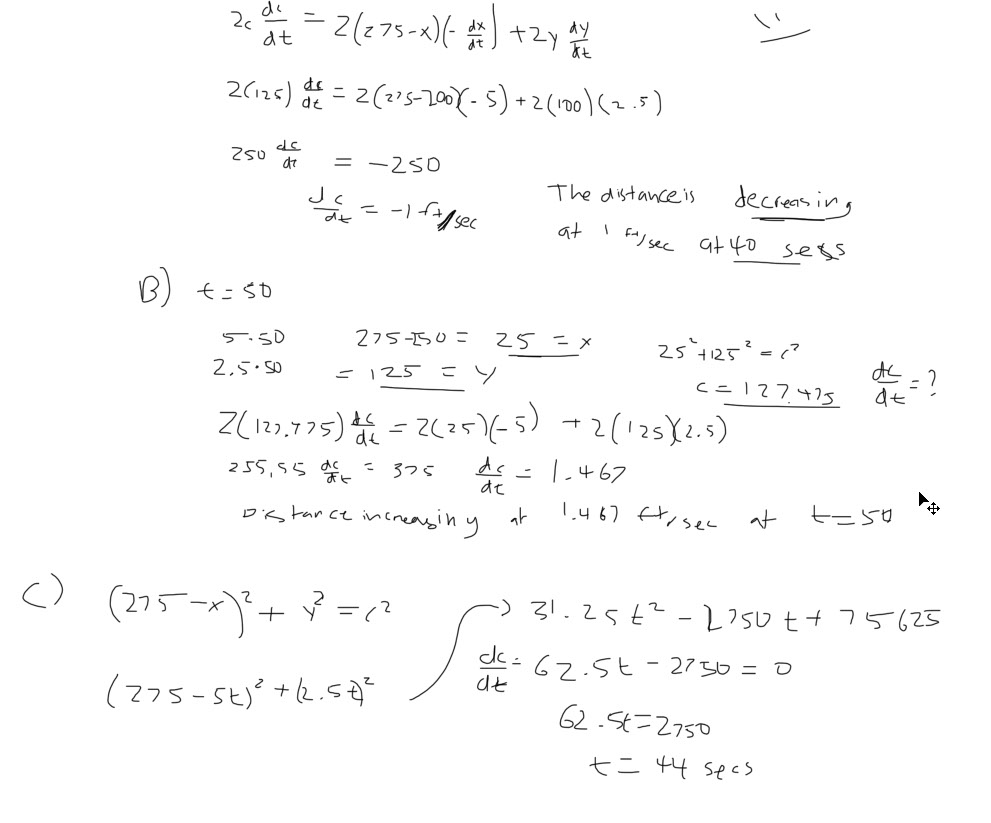 2c dc/dt = 2(275-x)(-dx/dt) + 2y dy/dt
2(125) dc/dt = 2(275-200)(-5) + 2(100)(2.5)
250 dc/dt = -250
dc/dt = -1 ft/sec
The distance is decreasing
at 1 ft/sec at 40 secs
B) t = 50
5·50 275-250 = 25 = x
2.5·50 = 125 = y
25² + 125² = c²
c = 127.475
dc/dt = ?
2(127.475) dc/dt = 2(25)(-5) + 2(125)(2.5)
255.95 dc/dt = 375 dc/dt = 1.467
Distance increasing at 1.467 ft/sec at t = 50
C) (275-x)² + y² = c²
(275-5t)² + (2.5t)²
31.25t² - 2750t + 75625
dc/dt = 62.5t - 2750 = 0
62.5t = 2750
t = 44 secs